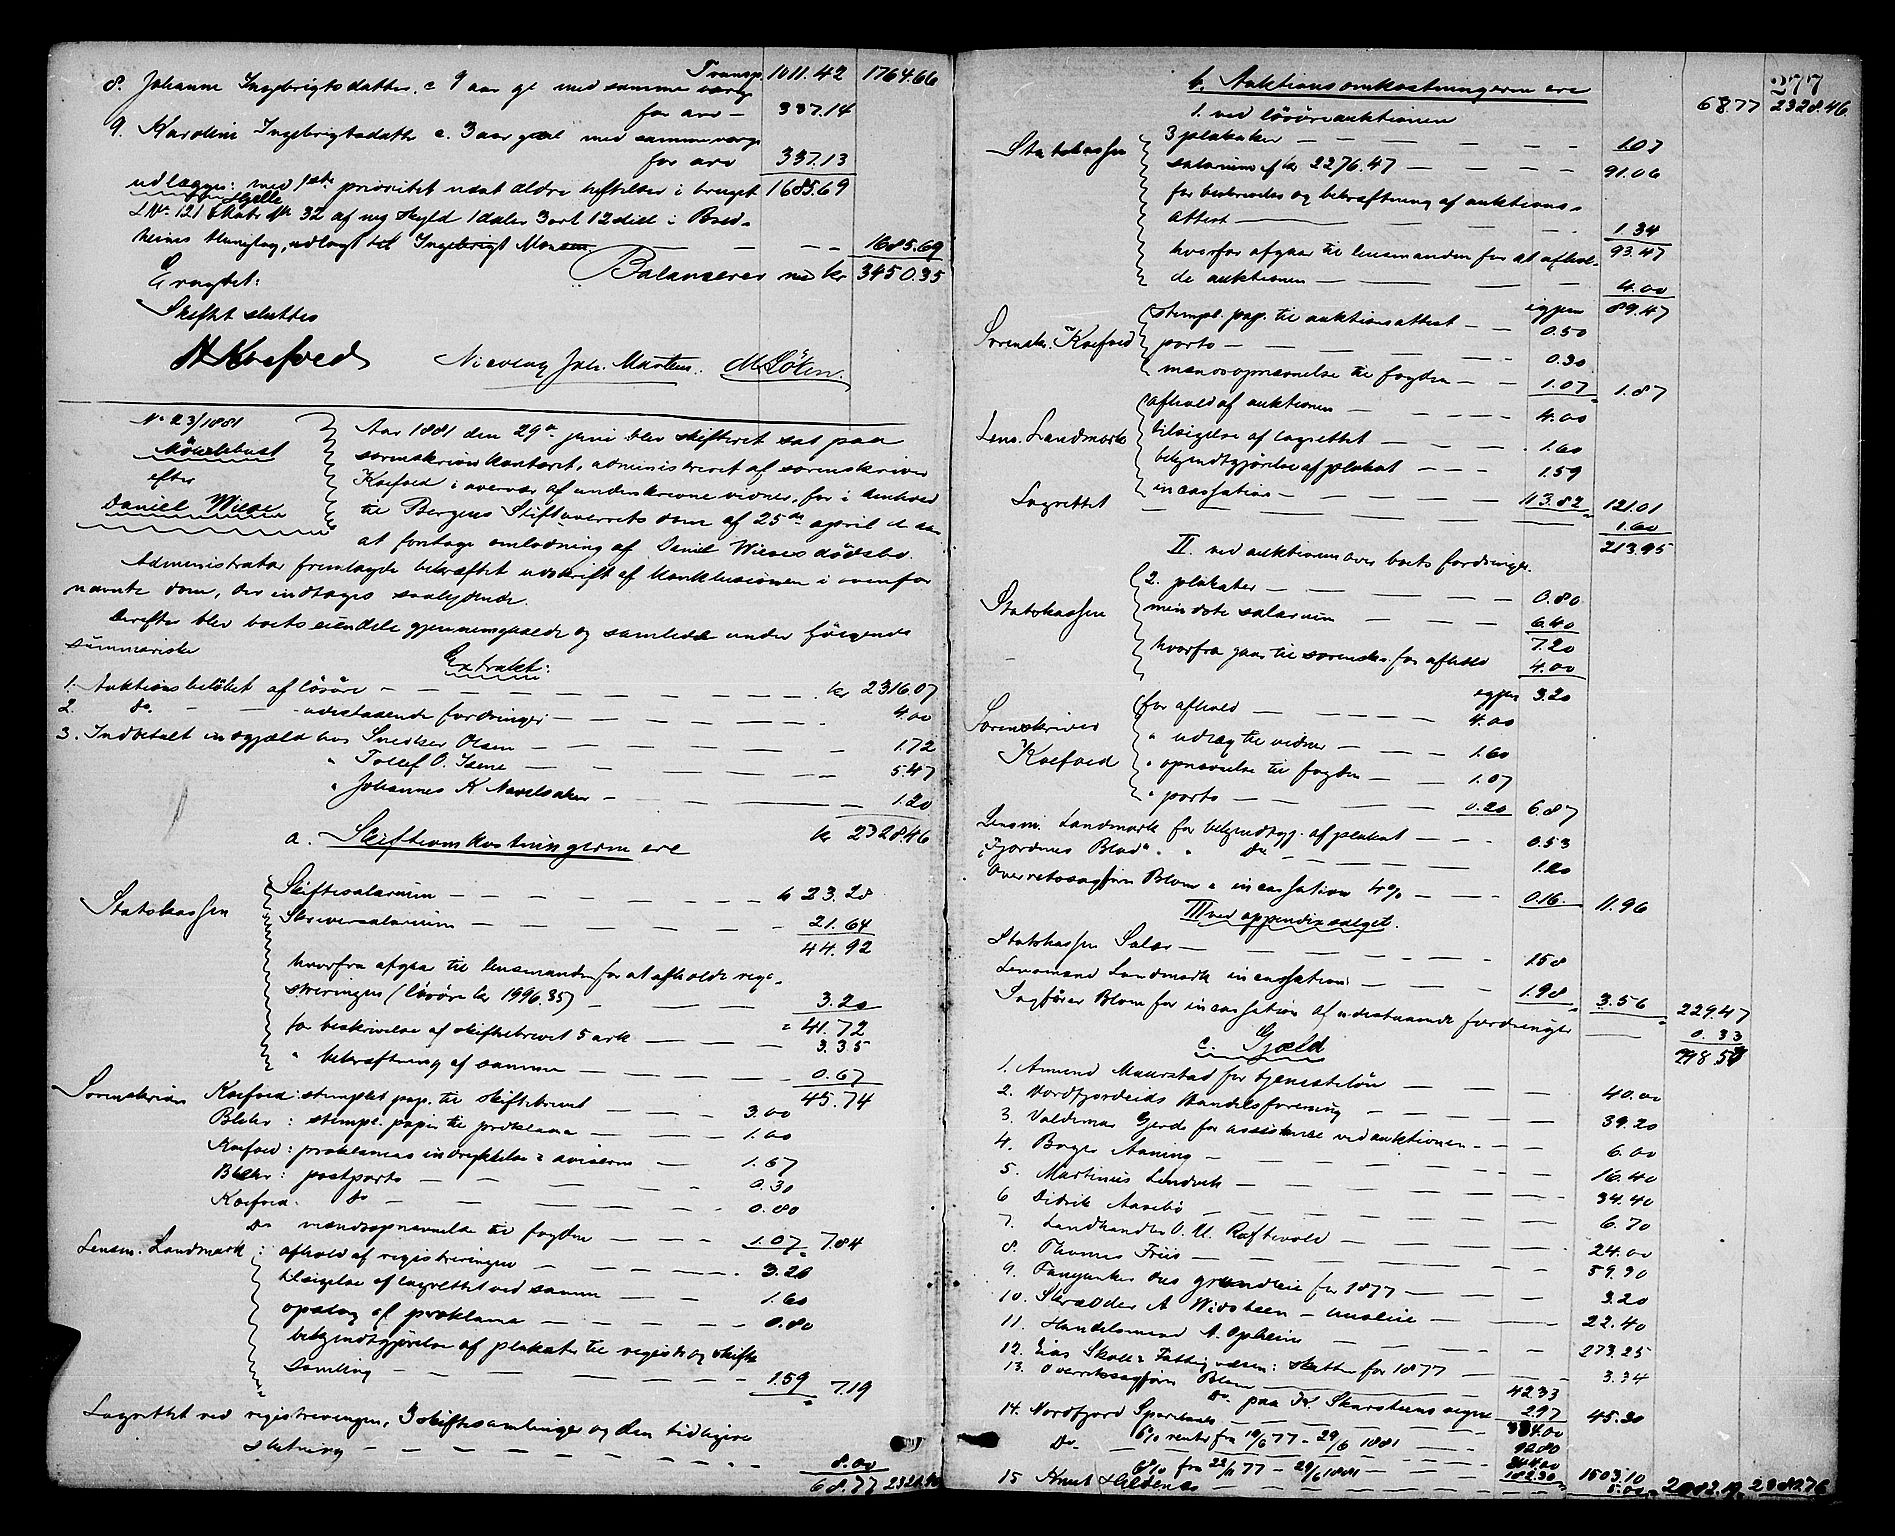 Transp. 1011.42 1764.66
8. Johanne Ingebrigtsdatter, c 9 aar gl med samme værge
for arv – 337.14
9. Karoline Ingebrigtsdatter c. 3 aar gml med samme værge
for arv 337.13
udlægges: med 1ste prioritet næst ældre heftelser i bruget 1685.69
Hjelle
LNr. 121 Matr. Nr. 32 af ny skyld 1 daler 3 ort 12 skill i Bred-
heims thinglag, udlagt til Ingebrigt Monsen. – – – 1685.69
Balancerer med kr 3450.35
Eragtet:
Skiftet sluttes
A Koefoed Nicolay Joh. Martens. M. Löken.
No 23/1881
Möklebust
efter
Daniel Wiese
Aar 1881 den 29de juni blev skifteret sat paa
sorenskriverkontoret, administreret af sorenskriver
Koefoed i overvær af underskrevne vidner, for i henhold
til Bergens Stiftsoverrets dom af 25de april d. aar
at foretage omlodning af Daniel Wieses dödsbo.
Administrator fremlagde bekræftet udskrift af konklusionen i ovenfor
nævnte dom, der indtages saalydende.
Derefter blev boets eiendele gjennemgaaede og samlede under fölgende
summariske
Extrakt:
1. Auktionsbelöbet af lösöre – – – – – kr 2316.07
2. do. – – udestaaende fordringer – – – – 4.00
3. Indbetalt indgjæld hos Snedker Olsen – – – – 1.72
" Tollef O. Isene – – – – 5.47
" Johannes K Navelsaker – – – 1.20
kr 2328.46
a. Skifteomkostningerne ere
Statskassen
Skiftesalarium – – – – – kr 23.28
Skriversalarium – – – – – 21.64
44.92
hvorfra afgaar til lensmanden for at afholde regi-
streringen (lösöre kr 1996.35) – – – 3.20
= 41.72
for beskrivelse af skiftebrevet 5 ark – – – 3.35
" bekræftning af samme – – – – 0.67
45.74
Sorenskriver Koefoed: stemplet pap. til skiftebrevet – – – 3.00
Blehr: stempl. papir til proklama – – – 1.00
Koefoed: proklamas indrykkelse i aviserne – – 1.67
Blehr: postporto – – – – 0.30
Koefoed: do – – – – 0.80
Do mændsopnævnelse til fogden – – – 1.07 7.84
Lensm. Landmark: afhold af registreringen – – – 3.20
tilsigelse af lagrettet ved samme – – 1.60
opslag af proklama – – – – 0.80
bekjendtgjörelse af plakater til registr. og skifte
samling – – – – – 1.59 7.19
Lagrettet ved registreringen, 3 skiftesamlinger og den tidligere
slutning – – – – – 8.00
68.77 2328.46
277
b. Auktionsomkostningerne ere 68.77 2328.46
1. ved lösöreauktionen
Statskassen
3 plakater – – – – – 1.07
salarium af kr 2276.47 – – – 91.06
for beskrivelse og bekræftning af auktions-
attest – – – – 1.34
93.47
hvorfor afgaar til lensmanden for at afhol-
de auktionen – – – – 4.00
igjen 89.47
Sorensk. Koefoed
stempl. pap. til auktionsattest – – 0.50
porto – – – – – 0.30
mændsopnævnelse til fogden – – 1.07 1.87
Lens. Landmark
afhold af auktionen – – – – 4.00
tilsigelse af lagrettet – – – 1.60
bekjendtgjörelse af plakat – – – 1.59
incassation – – – – – 113.82 121.01
Lagrettet – – – – – 1.60
213.95
II. ved auktionen over boets fordringer.
Statskassen
2. plakater – – – – – 0.80
mindste salarium – – – – 6.40
7.20
hvorfra gaar til sorenskr. for afhold 4.00
igjen 3.20
Sorenskriver
Koefoed
for afhold – – – – 4.00
" udlæg til vidner – – – 1.60
" opnævnelse til fogden – – 1.07
" porto – – – – 0.20 6.87
Lensm. Landmark for bekjendtgj. af plakat – – – 0.53
"Fjordenes Blad" " Do – – – – 1.20
Overretssagförer Blom " incassation 4% – – – 0.16 11.96
III ved appendixsalget.
Statskassen Salær – – – – – 1.58
Lensmand Landmark incassation – – – – 1.98 3.56 229.47
Sagförer Blom for incassation af udestaaende fordringer – 0.33
298.57
c. Gjæld
1. Amund Maurstad for tjenestelön – – – 40.00
2. Nordfjordeids Handelsforening – – – – 39.20
3. Valdemar Gjerde for assistence ved auktionen – – 6.00
4. Borger Aaning – – – – – 16.40
5. Martinus Lendvik – – – – – 34.40
6 Didrik Aasebö – – – – – 6.70
7. Landhandler O. U. Raftevold – – – – 24.00
8. Thomas Friis – – – – – 59.90
9. Fanejunker Aas grundleie for 1877 – – – 3.20
10. Skrædder A Widsteen – husleie – – – 22.40
11. Handelsmand A. Opheim – – – – 273.25
12. Eids Skole & Fattigvæsen: skatter for 1877 – – – 3.34
13. Overretssagförer Blom – – – – 42.33
Do. paa Fr. Skarsteens vegne 2.97 45.30
14. Nordfjord Sparebank – – – –
Do. 6% renter fra
6% fra – 29/6 1881 – – 182.30 1503.10
15 Knut Hildenæs – – – –